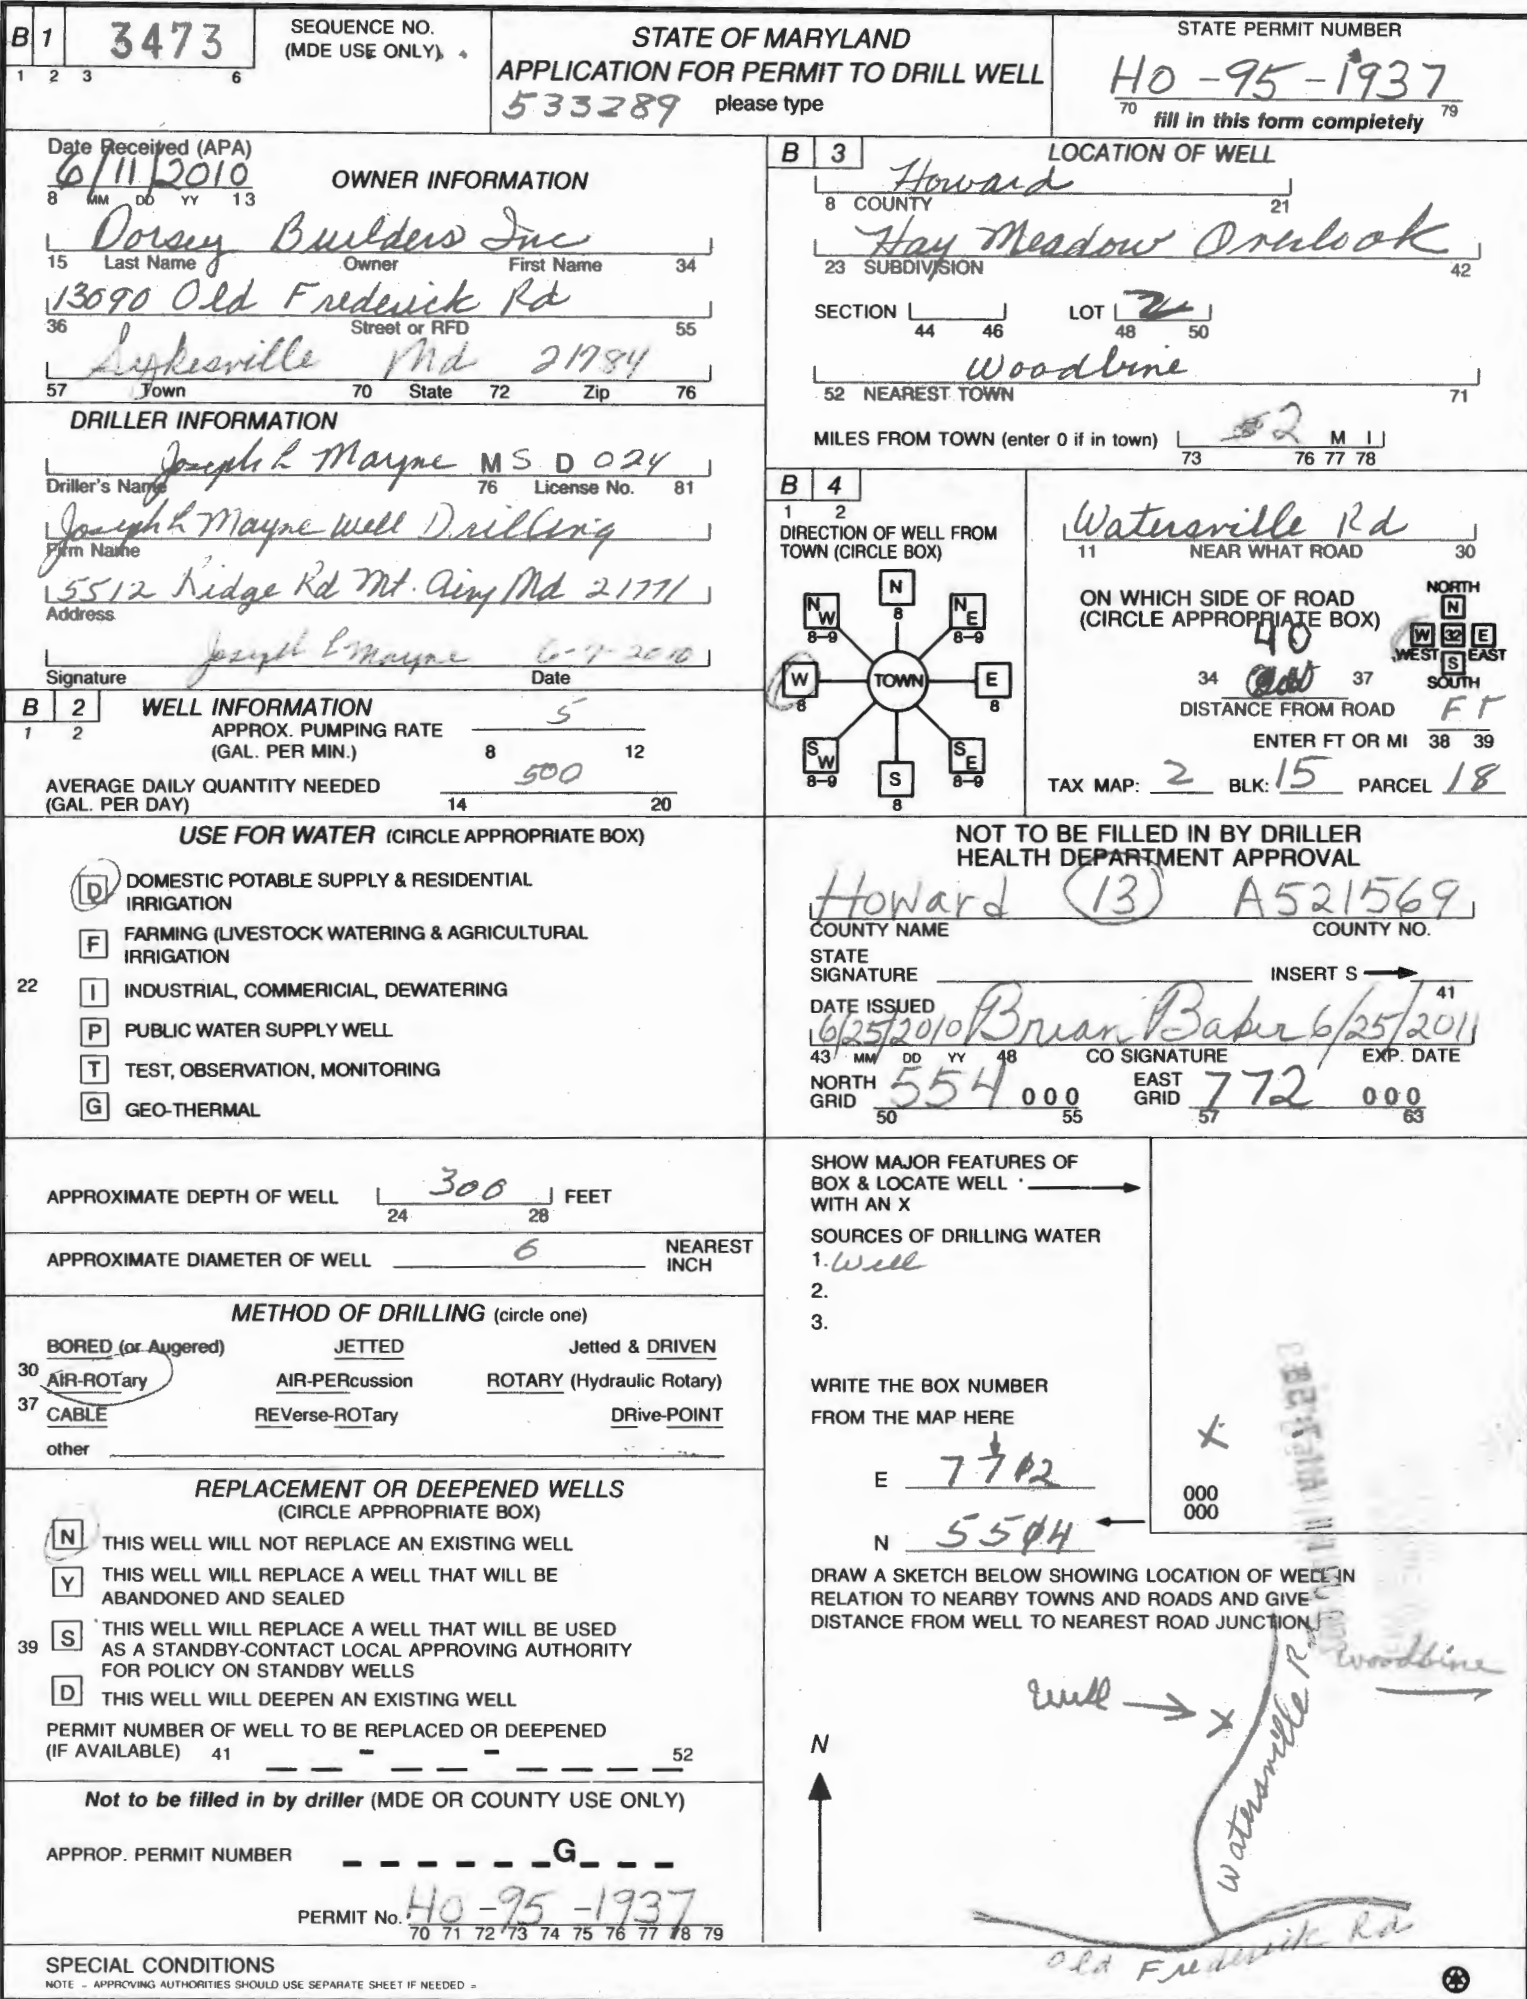 B 1 3473 SEQUENCE NO. (MDE USE ONLY)
1 2 3 6
STATE OF MARYLAND
APPLICATION FOR PERMIT TO DRILL WELL
533289 please type
STATE PERMIT NUMBER
HO-95-1937
70 79
fill in this form completely
Date Received (APA)
6/11/2010
8 MM DD YY 13
OWNER INFORMATION
Dorsey Builders Inc
15 Last Name Owner First Name 34
13090 Old Frederick Rd
36 Street or RFD 55
Sykesville Md 21784
57 Town 70 State 72 Zip 76
DRILLER INFORMATION
Joseph L Mayne M S D 024
Driller's Name 76 License No. 81
Joseph L Mayne Well Drilling
Firm Name
5512 Ridge Rd Mt. Airy Md 21771
Address
Joseph L Mayne 6-9-2010
Signature Date
B 2 WELL INFORMATION
1 2
APPROX. PUMPING RATE 5
(GAL. PER MIN.) 8 12
AVERAGE DAILY QUANTITY NEEDED 500
(GAL. PER DAY) 14 20
USE FOR WATER (CIRCLE APPROPRIATE BOX)
D DOMESTIC POTABLE SUPPLY & RESIDENTIAL
IRRIGATION
F FARMING (LIVESTOCK WATERING & AGRICULTURAL
IRRIGATION
22 I INDUSTRIAL, COMMERICIAL, DEWATERING
P PUBLIC WATER SUPPLY WELL
T TEST, OBSERVATION, MONITORING
G GEO-THERMAL
APPROXIMATE DEPTH OF WELL 300 FEET
24 28
APPROXIMATE DIAMETER OF WELL 6 NEAREST INCH
METHOD OF DRILLING (circle one)
BORED (or Augered) JETTED Jetted & DRIVEN
30 AIR-ROTary AIR-PERcussion ROTARY (Hydraulic Rotary)
37 CABLE REVerse-ROTary DRive-POINT
other
REPLACEMENT OR DEEPENED WELLS
(CIRCLE APPROPRIATE BOX)
N THIS WELL WILL NOT REPLACE AN EXISTING WELL
Y THIS WELL WILL REPLACE A WELL THAT WILL BE
ABANDONED AND SEALED
39 S THIS WELL WILL REPLACE A WELL THAT WILL BE USED
AS A STANDBY-CONTACT LOCAL APPROVING AUTHORITY
FOR POLICY ON STANDBY WELLS
D THIS WELL WILL DEEPEN AN EXISTING WELL
PERMIT NUMBER OF WELL TO BE REPLACED OR DEEPENED
(IF AVAILABLE) 41 - - 52
Not to be filled in by driller (MDE OR COUNTY USE ONLY)
APPROP. PERMIT NUMBER G
PERMIT No. HO-95-1937
70 71 72 73 74 75 76 77 78 79
SPECIAL CONDITIONS
NOTE - APPROVING AUTHORITIES SHOULD USE SEPARATE SHEET IF NEEDED =
B 3 LOCATION OF WELL
Howard
8 COUNTY 21
Hay Meadow Overlook
23 SUBDIVISION 42
SECTION LOT 2
44 46 48 50
Woodbine
52 NEAREST TOWN 71
MILES FROM TOWN (enter 0 if in town) 2 M I
73 76 77 78
B 4
1 2
DIRECTION OF WELL FROM
TOWN (CIRCLE BOX)
N
8
NW NE
8-9 8-9
W TOWN E
8 8
SW SE
8-9 8-9
S
8
Watersville Rd
11 NEAR WHAT ROAD 30
ON WHICH SIDE OF ROAD
(CIRCLE APPROPRIATE BOX)
NORTH
N
W 32 E
WEST EAST
S
SOUTH
40
34 37
DISTANCE FROM ROAD FT
ENTER FT OR MI 38 39
TAX MAP: 2 BLK: 15 PARCEL 18
NOT TO BE FILLED IN BY DRILLER
HEALTH DEPARTMENT APPROVAL
Howard 13 A521569
COUNTY NAME COUNTY NO.
STATE
SIGNATURE INSERT S
41
DATE ISSUED
6/25/2010 Brian Baker 6/25/2011
43 MM DD YY 48 CO SIGNATURE EXP. DATE
NORTH GRID 554 000 EAST GRID 772 000
50 55 57 63
SHOW MAJOR FEATURES OF
BOX & LOCATE WELL
WITH AN X
SOURCES OF DRILLING WATER
1. Well
2.
3.
WRITE THE BOX NUMBER
FROM THE MAP HERE
X
E 7712
000
000
N 5514
DRAW A SKETCH BELOW SHOWING LOCATION OF WELL IN
RELATION TO NEARBY TOWNS AND ROADS AND GIVE
DISTANCE FROM WELL TO NEAREST ROAD JUNCTION
Woodbine
Well X
Watersville Rd
N
Old Frederick Rd